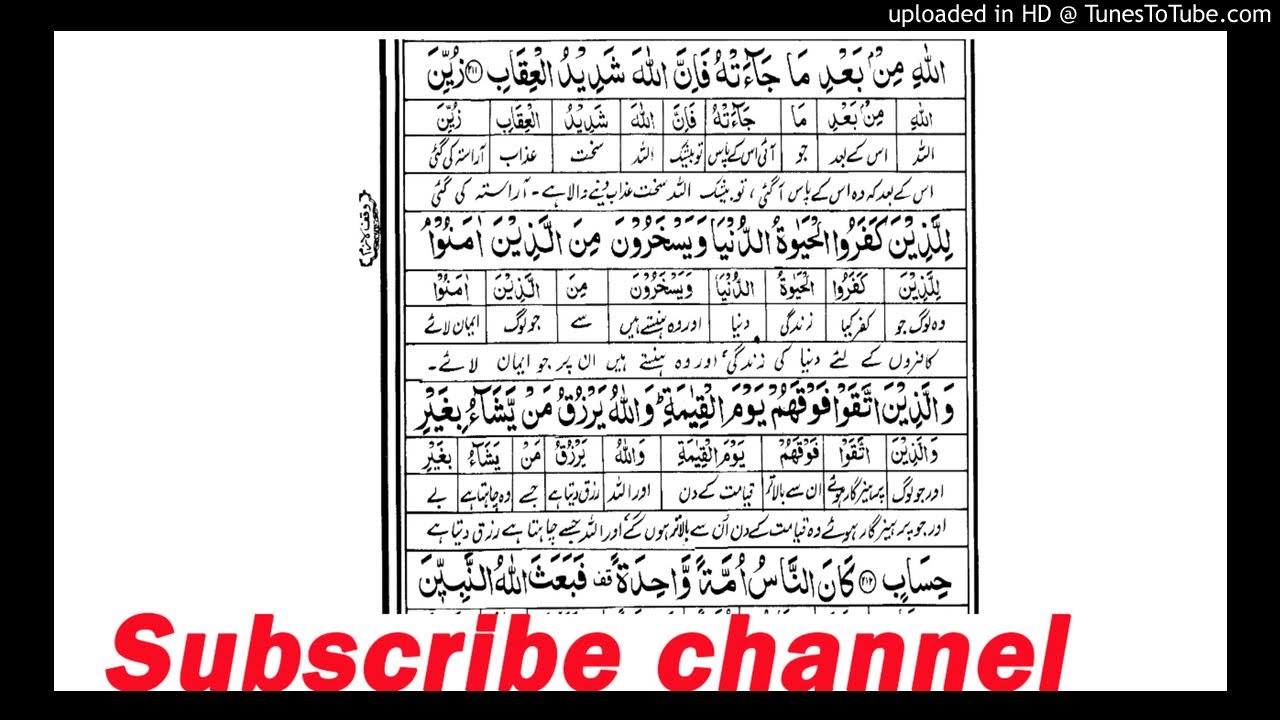 uploaded in HD @ TunesToTube.com
اللّٰهِ مِنْۢ بَعْدِ مَا جَآءَتْهُ فَاِنَّ اللّٰهَ شَدِيْدُ الْعِقَابِ ﴿۲۱۱﴾ زُيِّنَ
اللّٰهِ مِنْۢ بَعْدِ مَا جَآءَتْهُ فَاِنَّ اللّٰهَ شَدِيْدُ الْعِقَابِ زُيِّنَ
اللہ اس کے بعد جو آئی اس کے پاس تو بیشک اللہ سخت عذاب آراستہ کی گئی
اس کے بعد کہ وہ اس کے پاس آگئی، تو بیشک اللہ سخت عذاب دینے والا ہے۔ آراستہ کی گئی
لِلَّذِيْنَ كَفَرُوا الْحَيٰوةُ الدُّنْيَا وَيَسْخَرُوْنَ مِنَ الَّذِيْنَ اٰمَنُوْا ۘ
لِلَّذِيْنَ كَفَرُوا الْحَيٰوةُ الدُّنْيَا وَيَسْخَرُوْنَ مِنَ الَّذِيْنَ اٰمَنُوْا
وہ لوگ جو کفر کیا زندگی دنیا اور وہ ہنستے ہیں سے جو لوگ ایمان لائے
کافروں کے لئے دنیا کی زندگی، اور وہ ہنستے ہیں ان پر جو ایمان لائے۔
وَالَّذِيْنَ اتَّقَوْا فَوْقَهُمْ يَوْمَ الْقِيٰمَةِ ؕ وَاللّٰهُ يَرْزُقُ مَنْ يَّشَآءُ بِغَيْرِ
وَالَّذِيْنَ اتَّقَوْا فَوْقَهُمْ يَوْمَ الْقِيٰمَةِ وَاللّٰهُ يَرْزُقُ مَنْ يَشَآءُ بِغَيْرِ
اور جو لوگ پرہیزگار ہوئے ان سے بالاتر قیامت کے دن اور اللہ رزق دیتا ہے جسے وہ چاہتا ہے بے
اور جو پرہیزگار ہوئے وہ قیامت کے دن اُن سے بالاتر ہوں گے اور اللہ جسے چاہتا ہے رزق دیتا ہے
حِسَابٍ ﴿۲۱۲﴾ كَانَ النَّاسُ اُمَّةً وَّاحِدَةً قف فَبَعَثَ اللّٰهُ النَّبِيّٖنَ
Subscribe channel